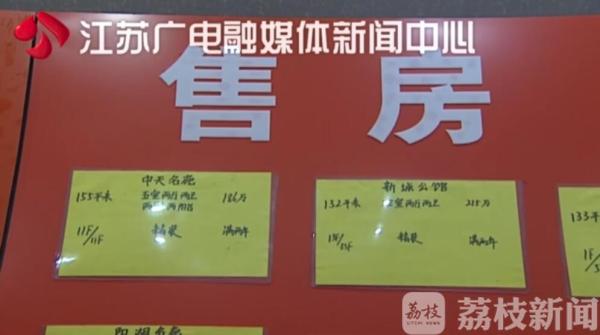 江苏广电融媒体新闻中心
售 房
中天名苑
155平米 五室两厅两卫 186万
11F/11F 精装 满两年
新城公馆
132平米 三室两厅两卫 215万
精装 满两年
133平
荔枝
荔枝新闻